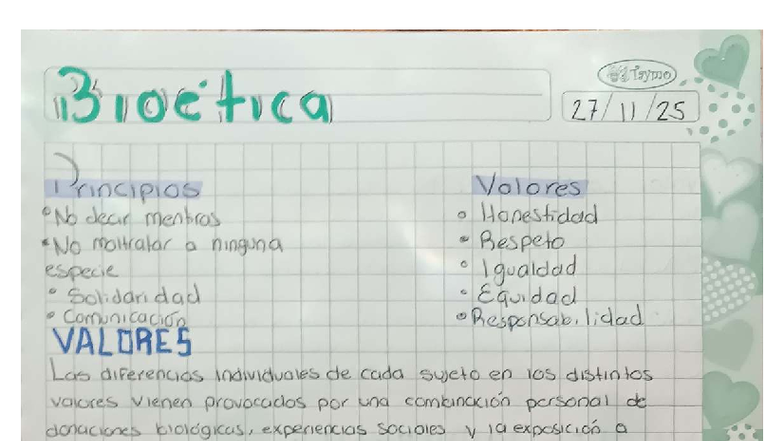 Bioética
Taymo
27/11/25
Principios
Valores
° No decir mentiras
• No maltratar a ninguna
especie
° Solidaridad
• Comunicación
° Honestidad
• Respeto
° Igualdad
° Equidad
° Responsabilidad
VALORES
Las diferencias individuales de cada sujeto en los distintos
valores vienen provocados por una combinación personal de
donaciones biológicas, experiencias sociales y la exposición a